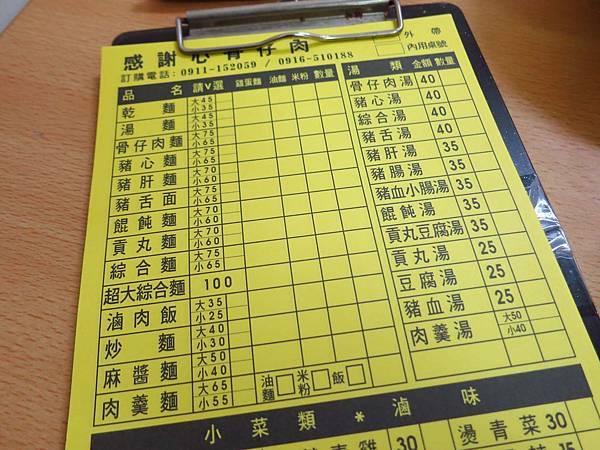 感謝心骨仔肉
外帶
內用桌號
訂購電話:0911-152059 / 0916-510188
品名 請V選 雞蛋麵 油麵 米粉 數量
乾麵 大45 小35
湯麵 大45 小35
骨仔肉麵 大75 小65
豬心麵 大75 小65
豬肝麵 大70 小60
豬舌面 大75 小65
餛飩麵 大70 小60
貢丸麵 大70 小60
綜合麵 大75 小65
超大綜合麵 100
滷肉飯 大35 小25
炒麵 大40 小30
麻醬麵 大50 小40
肉羹麵 大65 小55 油麵 米粉 飯
湯類 金額 數量
骨仔肉湯 40
豬心湯 40
綜合湯 40
豬舌湯 40
豬肝湯 35
豬腸湯 35
豬血小腸湯 35
餛飩湯 35
貢丸豆腐湯 35
貢丸湯 25
豆腐湯 25
豬血湯 25
肉羹湯 大50 小40
小菜類*滷味
30
燙青菜 30
15